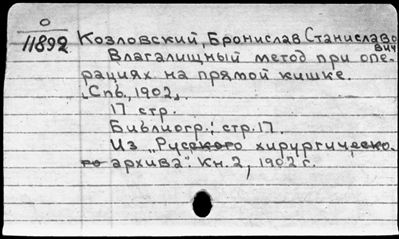 О
11892
Козловский, Бронислав Станиславо
вич
Влагалищный метод при опе-
рациях на прямой кишке.
[Спб., 1902].
17 стр.
Библиогр.: стр. 17.
Из „Русского хирургическо-
го архива". Кн. 2, 1902 г.